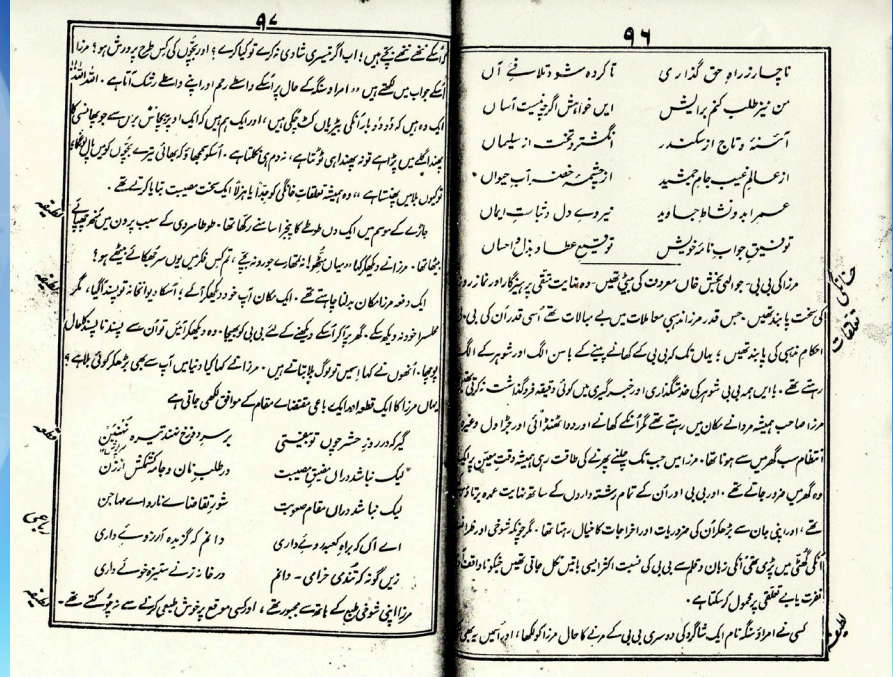 ۹۶
ناچار زراہِ حق گذاری تا کردہ شود تلافیِ آں
من نیز طلب کنم برایش ایں خواہش اگرچہ نیست آساں
آئنۂ و تاج از سکندر انگشتر و تخت از سلیماں
از عالمِ غیب جامِ جمشید از چشمۂ خضر آبِ حیواں
عمرِ ابد و نشاطِ جاوید نیروے دل و ثباتِ ایماں
توفیقِ جواب نامۂ خویش توقیعِ عطا و بذل و احساں
خانگی تعلقات
مرزا کی بی بی۔ جو الٰہی بخش خاں معروف کی بیٹی تھیں۔ وہ نہایت متقی پرہیزگار اور نماز روزہ
کی سخت پابند تھیں۔ جس قدر مرزا مذہبی معاملات میں بے مبالات تھے اُسی قدر اُن کی بی بی
احکام مذہبی کی پابند تھیں؛ یہاں تک کہ بی بی کے کھانے پینے کے باسن الگ اور شوہر کے الگ
رہتے تھے۔ باایں ہمہ بی بی شوہر کی خدمتگذاری اور خبرگیری میں کوئی دقیقہ فروگذاشت نہ کرتی تھیں
مرزا صاحب ہمیشہ مردانے مکان میں رہتے تھے مگر اُنکے کھانے اور دوا ٹھنڈائی اور جڑاول وغیرہ کا
انتظام سب گھر میں سے ہوتا تھا۔ مرزا میں جب تک چلنے پھرنے کی طاقت رہی ہمیشہ وقت معیّن پر
وہ گھر میں ضرور جاتے تھے۔ اور بی بی اور اُن کے تمام رشتہ داروں کے ساتھ نہایت عمدہ برتاؤ
تھے؛ اور اپنی جان سے بڑھکر اُن کی ضروریات اور اخراجات کا خیال رہتا تھا۔ مگر چونکہ شوخی اور ظرافت
اُنکی گھٹی میں پڑی تھی اُنکی زبان و قلم سے بی بی کی نسبت اکثر ایسی باتیں نکل جاتی تھیں جنکو ناواقف آدمی
نفرت یا بے تعلقی پر محمول کر سکتا ہے۔
لطیفہ
کسی نے امراؤ سنگہ نام ایک شاگرد کی دوسری بی بی کے مرنے کا حال مرزا کو لکھا؛ اور اُسمیں یہ بھی
۹۷
کہ اُسکے ننھے ننھے بچّے ہیں؛ اب اگر تیسری شادی نہ کرے تو کیا کرے؟ اور بچّوں کی کس طرح پرورش ہو؟ مرزا
اُسکے جواب میں لکھتے ہیں "امراو سنگہ کے حال پر اُسکے واسطے رحم اور اپنے واسطے رشک آتا ہے۔ اللہ اللہ
ایک وہ ہیں کہ دو دو بار اُنکی بیڑیاں کٹ چکی ہیں؛ اور ایک ہم ہیں کہ ایک اوپر پچاس برس سے جو پھانسی کا
پھندا گلے میں پڑا ہے تو نہ پھندا ہی ٹوٹتا ہے، نہ دم ہی نکلتا ہے۔ اُسکو سمجھاؤ کہ بھائی تیرے بچّوں کو میں پال لونگا
تو کیوں بلا میں پھنستا ہے"، وہ ہمیشہ تعلقاتِ خانگی کو جدًّا یا ہزلًا ایک سخت مصیبت بتایا کرتے تھے۔
لطیفہ
جاڑے کے موسم میں ایک دن طوطے کا پنجرا سامنے رکھا تھا۔ طوطا سردی کے سبب پروں میں مُنھ چھپائے
بیٹھا تھا۔ مرزا نے دیکھکر کہا "میاں مٹّھو! نہ تمھارے جورو نہ بچّے، تم کس فکر میں یوں سر جھکائے بیٹھے ہو!
لطیفہ
ایک دفعہ مرزا مکان بدلنا چاہتے تھے۔ ایک مکان آپ خود دیکھکر آئے؛ اُسکا دیوانخانہ تو پسند آگیا، مگر
محلسرا خود نہ دیکھ سکے۔ گھر پر آکر اُسکے دیکھنے کے لئے بی بی کو بھیجا۔ وہ دیکھکر آئیں تو اُن سے پسند ناپسند کا حال
پوچھا۔ اُنھوں نے کہا اِسمیں تو لوگ بلا بتاتے ہیں۔ مرزا نے کہا کیا دنیا میں آپ سے بھی بڑھکر کوئی بلا ہے؟
یہاں مرزا کا ایک قطعہ اور ایک رباعی مقتضاے مقام کے موافق لکھی جاتی ہے
قطعہ
گیر کہ در روزِ حشر چوں تو بیفتی بر سرِ دوزخ نہند تیرہ نشیمن
لیک نباشد دراں مضیقِ مصیبت در طلبِ نان و جامہ کشمکش از زن
لیک نباشد دراں مقامِ صعوبت شورِ تقاضاے نارواے مہاجن
رباعی
اے آں کہ براہِ کعبہ روے داری دانم کہ گزیدہ آرزوے داری
زیں گونہ کہ تُند می خرامی۔ دانم در خانہ زنے ستیزہ خوے داری
لطیفہ
مرزا اپنی شوخیِ طبع کے ہاتھ سے مجبور تھے، اور کسی موقع پر خوش طبعی کرنے سے نہ چوکتے تھے۔